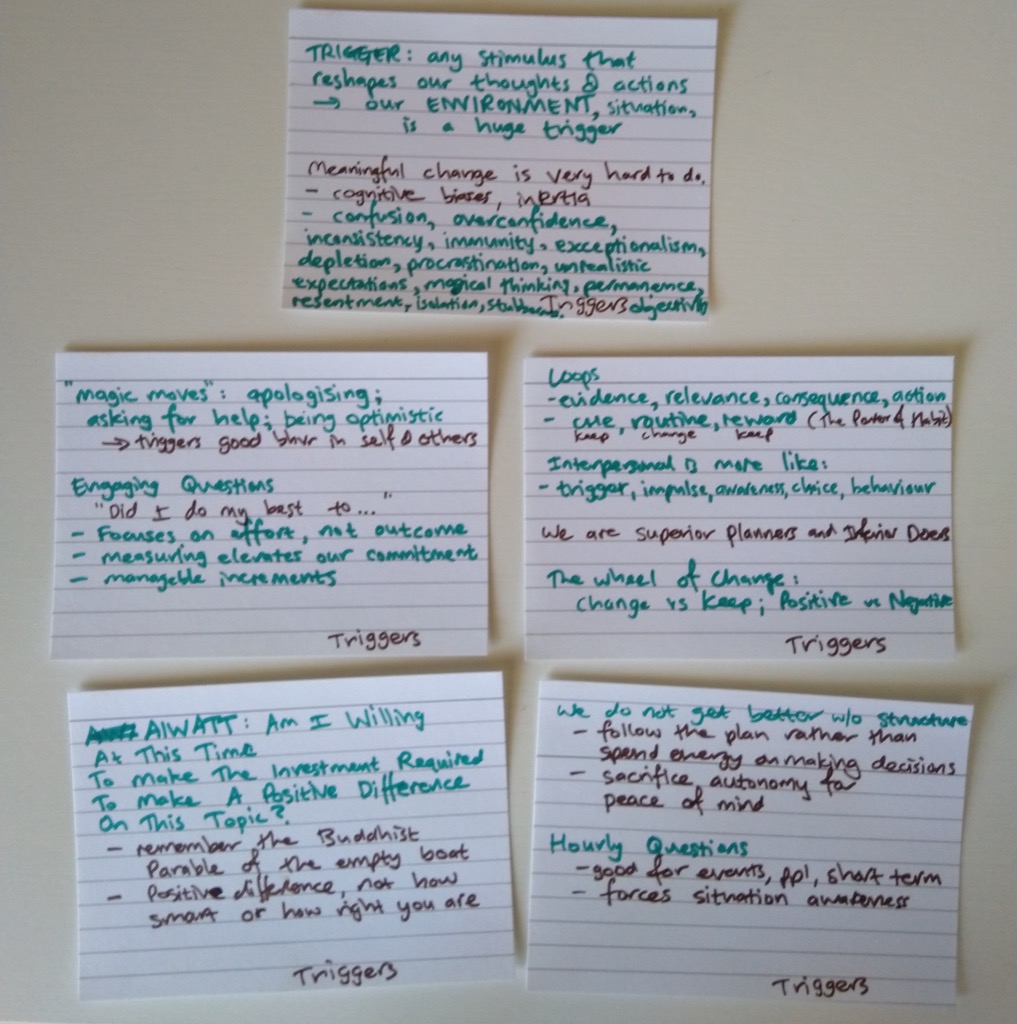 TRIGGER: any stimulus that
reshapes our thoughts & actions
→ our ENVIRONMENT, situation,
is a huge trigger
Meaningful change is very hard to do.
- cognitive biases, inertia
- confusion, overconfidence,
inconsistency, immunity, exceptionalism,
depletion, procrastination, unrealistic
expectations, magical thinking, permanence,
resentment, isolation, objectivity
Triggers
"magic moves": apologising;
asking for help; being optimistic
→ triggers good bhvr in self & others
Engaging Questions
"Did I do my best to..."
- Focuses on effort, not outcome
- measuring elevates our commitment
- managable increments
Triggers
Loops
- evidence, relevance, consequence, action
- cue, routine, reward (The Power of Habit)
keep change keep
Interpersonal is more like:
- trigger, impulse, awareness, choice, behaviour
We are superior planners and Inferior Doers
The wheel of change:
change vs keep; Positive vs Negative
Triggers
AIWATT: Am I Willing
At This Time
To make The Investment Required
To Make A Positive Difference
On This Topic?
- remember the Buddhist
Parable of the empty boat
- Positive difference, not how
smart or how right you are
Triggers
We do not get better w/o structure
- follow the plan rather than
spend energy on making decisions
- sacrifice autonomy for
peace of mind
Hourly Questions
- good for events, ppl, short term
- forces situation awareness
Triggers